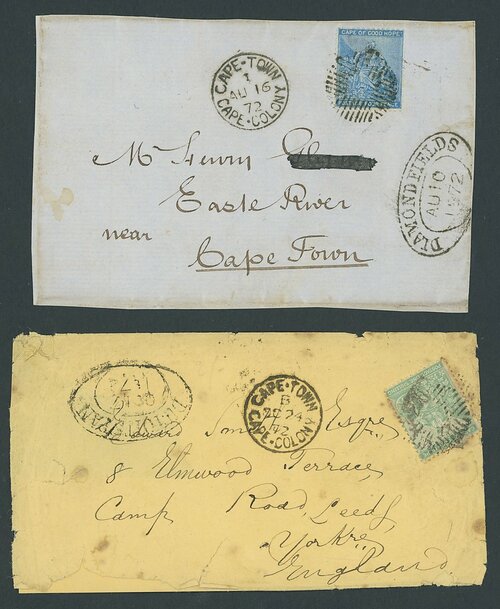 CAPE OF GOOD HOPE
CAPE-TOWN
1
AU 16
72
CAPE-COLONY
DIAMONDFIELDS
AU 10
1872
Mr Henry
Easte River
near
Cape Town
CAPE-TOWN
B
24
72
CAPE-COLONY
Esqre
8 Elmwood Terrace
Camp Road, Leeds,
Yorkre
England